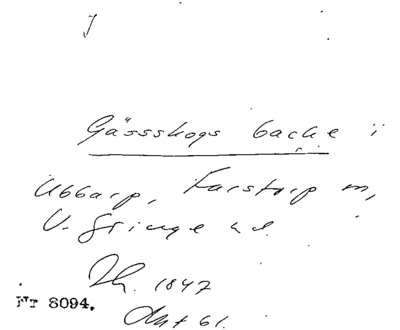 Gåssskogs backe i
Ubbarp, Farstorp m,
V. Göinge hd.
Th. 1847
Nr 8094.